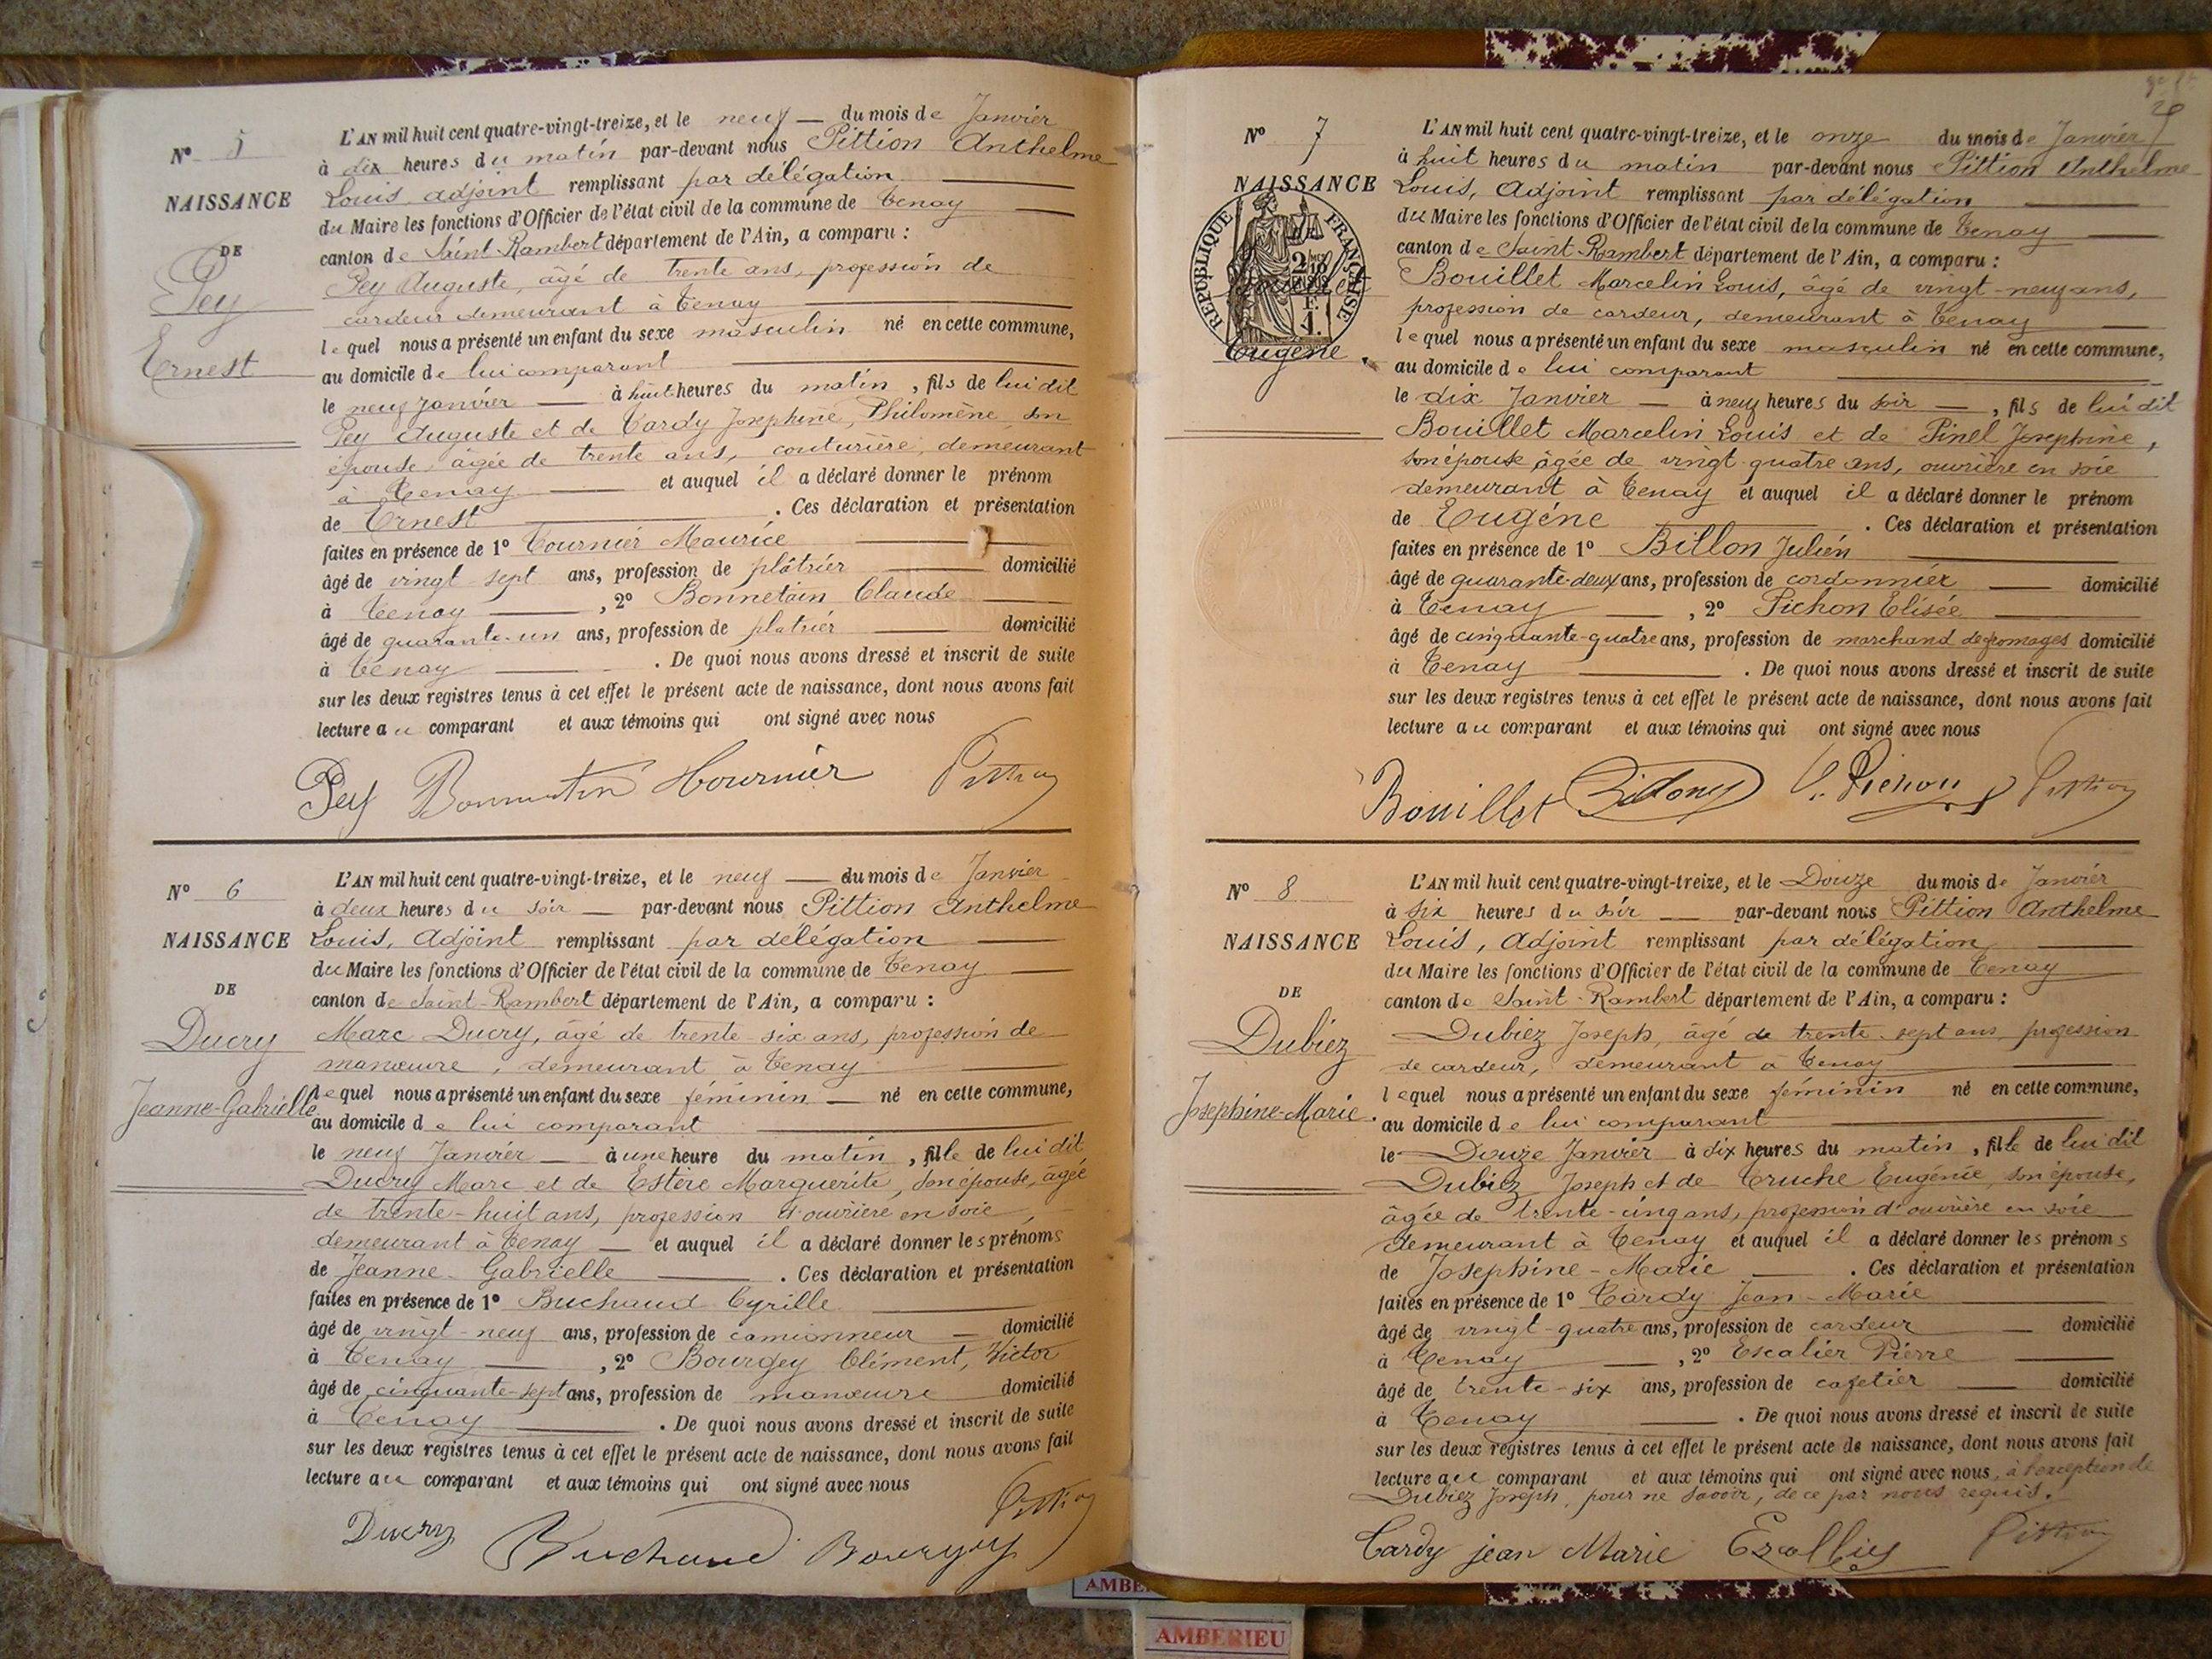 N° 5
NAISSANCE
DE
Pey
Ernest
L'AN mil huit cent quatre-vingt-treize, et le neuf — du mois de Janvier
à dix heures du matin par-devant nous Pittion Anthelme
Louis, adjoint remplissant par délégation
du Maire les fonctions d'Officier de l'état civil de la commune de Tenay
canton de Saint-Rambert département de l'Ain, a comparu :
Pey Auguste, âgé de trente ans, profession de
cardeur demeurant à Tenay
lequel nous a présenté un enfant du sexe masculin né en cette commune,
au domicile de lui comparant
le neuf janvier — à huit heures du matin, fils de lui dit
Pey Auguste et de Tardy Josephine, Philomène, son
épouse, âgée de trente ans, couturière, demeurant
à Tenay — et auquel il a déclaré donner le prénom
de Ernest — . Ces déclaration et présentation
faites en présence de 1° Tournier Maurice
âgé de vingt-sept ans, profession de plâtrier — domicilié
à Tenay — , 2° Bonnetain Claude
âgé de quarante-un ans, profession de platrier — domicilié
à Tenay — . De quoi nous avons dressé et inscrit de suite
sur les deux registres tenus à cet effet le présent acte de naissance, dont nous avons fait
lecture au comparant et aux témoins qui ont signé avec nous
Pey Tournier Pittion
N° 6
NAISSANCE
DE
Ducry
Jeanne-Gabrielle
L'AN mil huit cent quatre-vingt-treize, et le neuf — du mois de Janvier
à deux heures du soir — par-devant nous Pittion Anthelme
Louis, Adjoint remplissant par délégation —
du Maire les fonctions d'Officier de l'état civil de la commune de Tenay —
canton de Saint-Rambert département de l'Ain, a comparu :
Marc Ducry, âgé de trente-six ans, profession de
manœuvre, demeurant à Tenay
lequel nous a présenté un enfant du sexe féminin — né en cette commune,
au domicile de lui comparant
le neuf Janvier — à une heure du matin, fille de lui dit
Ducry Marc et de Estère Marguerite, son épouse, âgée
de trente-huit ans, profession d'ouvrière en soie,
demeurant à Tenay — et auquel il a déclaré donner les prénoms
de Jeanne-Gabrielle — . Ces déclaration et présentation
faites en présence de 1° Buchaud Cyrille
âgé de vingt-neuf ans, profession de camionneur — domicilié
à Tenay — , 2° Bourgey Clément, Victor
âgé de cinquante-sept ans, profession de manœuvre domicilié
à Tenay — . De quoi nous avons dressé et inscrit de suite
sur les deux registres tenus à cet effet le présent acte de naissance, dont nous avons fait
lecture au comparant et aux témoins qui ont signé avec nous
Pittion
Ducry Buchaud Bourgey
N° 7
NAISSANCE
REPUBLIQUE FRANÇAISE
Eugène
L'AN mil huit cent quatre-vingt-treize, et le onze du mois de Janvier
à huit heures du matin par-devant nous Pittion Anthelme
Louis, Adjoint remplissant par délégation —
du Maire les fonctions d'Officier de l'état civil de la commune de Tenay —
canton de Saint-Rambert département de l'Ain, a comparu :
Bouillet Marcelin Louis, âgé de vingt-neuf ans,
profession de cardeur, demeurant à Tenay —
lequel nous a présenté un enfant du sexe masculin né en cette commune,
au domicile de lui comparant
le dix Janvier — à neuf heures du soir — , fils de lui dit
Bouillet Marcelin Louis et de Pinel Josephine,
son épouse âgée de vingt-quatre ans, ouvrière en soie
demeurant à Tenay et auquel il a déclaré donner le prénom
de Eugéne — . Ces déclaration et présentation
faites en présence de 1° Billon Julien
âgé de quarante-deux ans, profession de cordonnier — domicilié
à Tenay — , 2° Pichon Elisée
âgé de cinquante-quatre ans, profession de marchand de fromages domicilié
à Tenay — . De quoi nous avons dressé et inscrit de suite
sur les deux registres tenus à cet effet le présent acte de naissance, dont nous avons fait
lecture au comparant et aux témoins qui ont signé avec nous
Bouillet Pichon Pittion
N° 8
NAISSANCE
DE
Dubiez
Josephine-Marie.
L'AN mil huit cent quatre-vingt-treize, et le Douze du mois de Janvier
à six heures du soir — par-devant nous Pittion Anthelme
Louis, Adjoint remplissant par délégation —
du Maire les fonctions d'Officier de l'état civil de la commune de Tenay
canton de Saint-Rambert département de l'Ain, a comparu :
Dubiez Joseph, âgé de trente-sept ans, profession
de cardeur, demeurant à Tenay
lequel nous a présenté un enfant du sexe féminin né en cette commune,
au domicile de lui comparant
le Douze Janvier à dix heures du matin, fille de lui dit
Dubiez Joseph et de Truche Eugénie, son épouse,
âgée de trente-cinq ans, profession d'ouvrière en soie
demeurant à Tenay et auquel il a déclaré donner les prénoms
de Josephine-Marie — . Ces déclaration et présentation
faites en présence de 1° Tardy Jean-Marie
âgé de vingt-quatre ans, profession de cardeur — domicilié
à Tenay — , 2° Escalier Pierre
âgé de trente-six ans, profession de cafetier — domicilié
à Tenay — . De quoi nous avons dressé et inscrit de suite
sur les deux registres tenus à cet effet le présent acte de naissance, dont nous avons fait
lecture au comparant et aux témoins qui ont signé avec nous, à l'exception de
Dubiez Joseph, pour ne savoir, de ce par nous requis.
Tardy jean Marie Pittion
AMBE
AMBERIEU